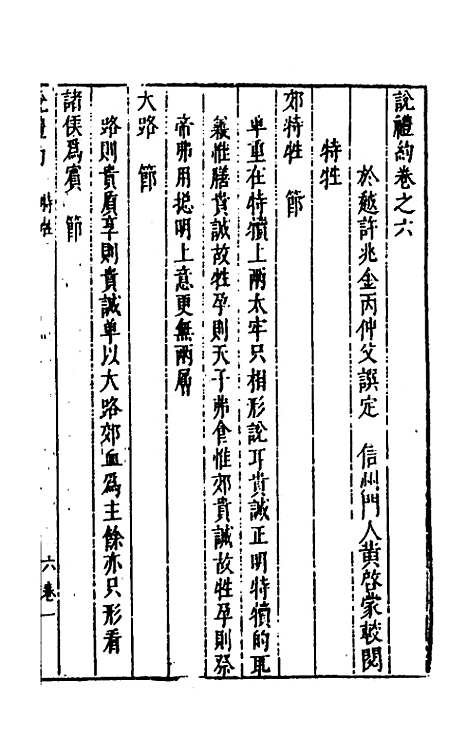 說禮約卷之六
於越許兆金丙仲父譔定　信州門人黄啓蒙較閱
特牲
郊特牲　節
單重在特犢上兩太牢只相形說耳貴誠正明特犢的取
義惟膳貴誠故牲孕則天子弗食惟郊貴誠故牲孕則祭
帝弗用摠明上意更無兩層
大路　節
路則貴質享則貴誠單以大路郊血為主餘亦只形看
諸侯爲賓　節
說禮約　特牲　六卷一